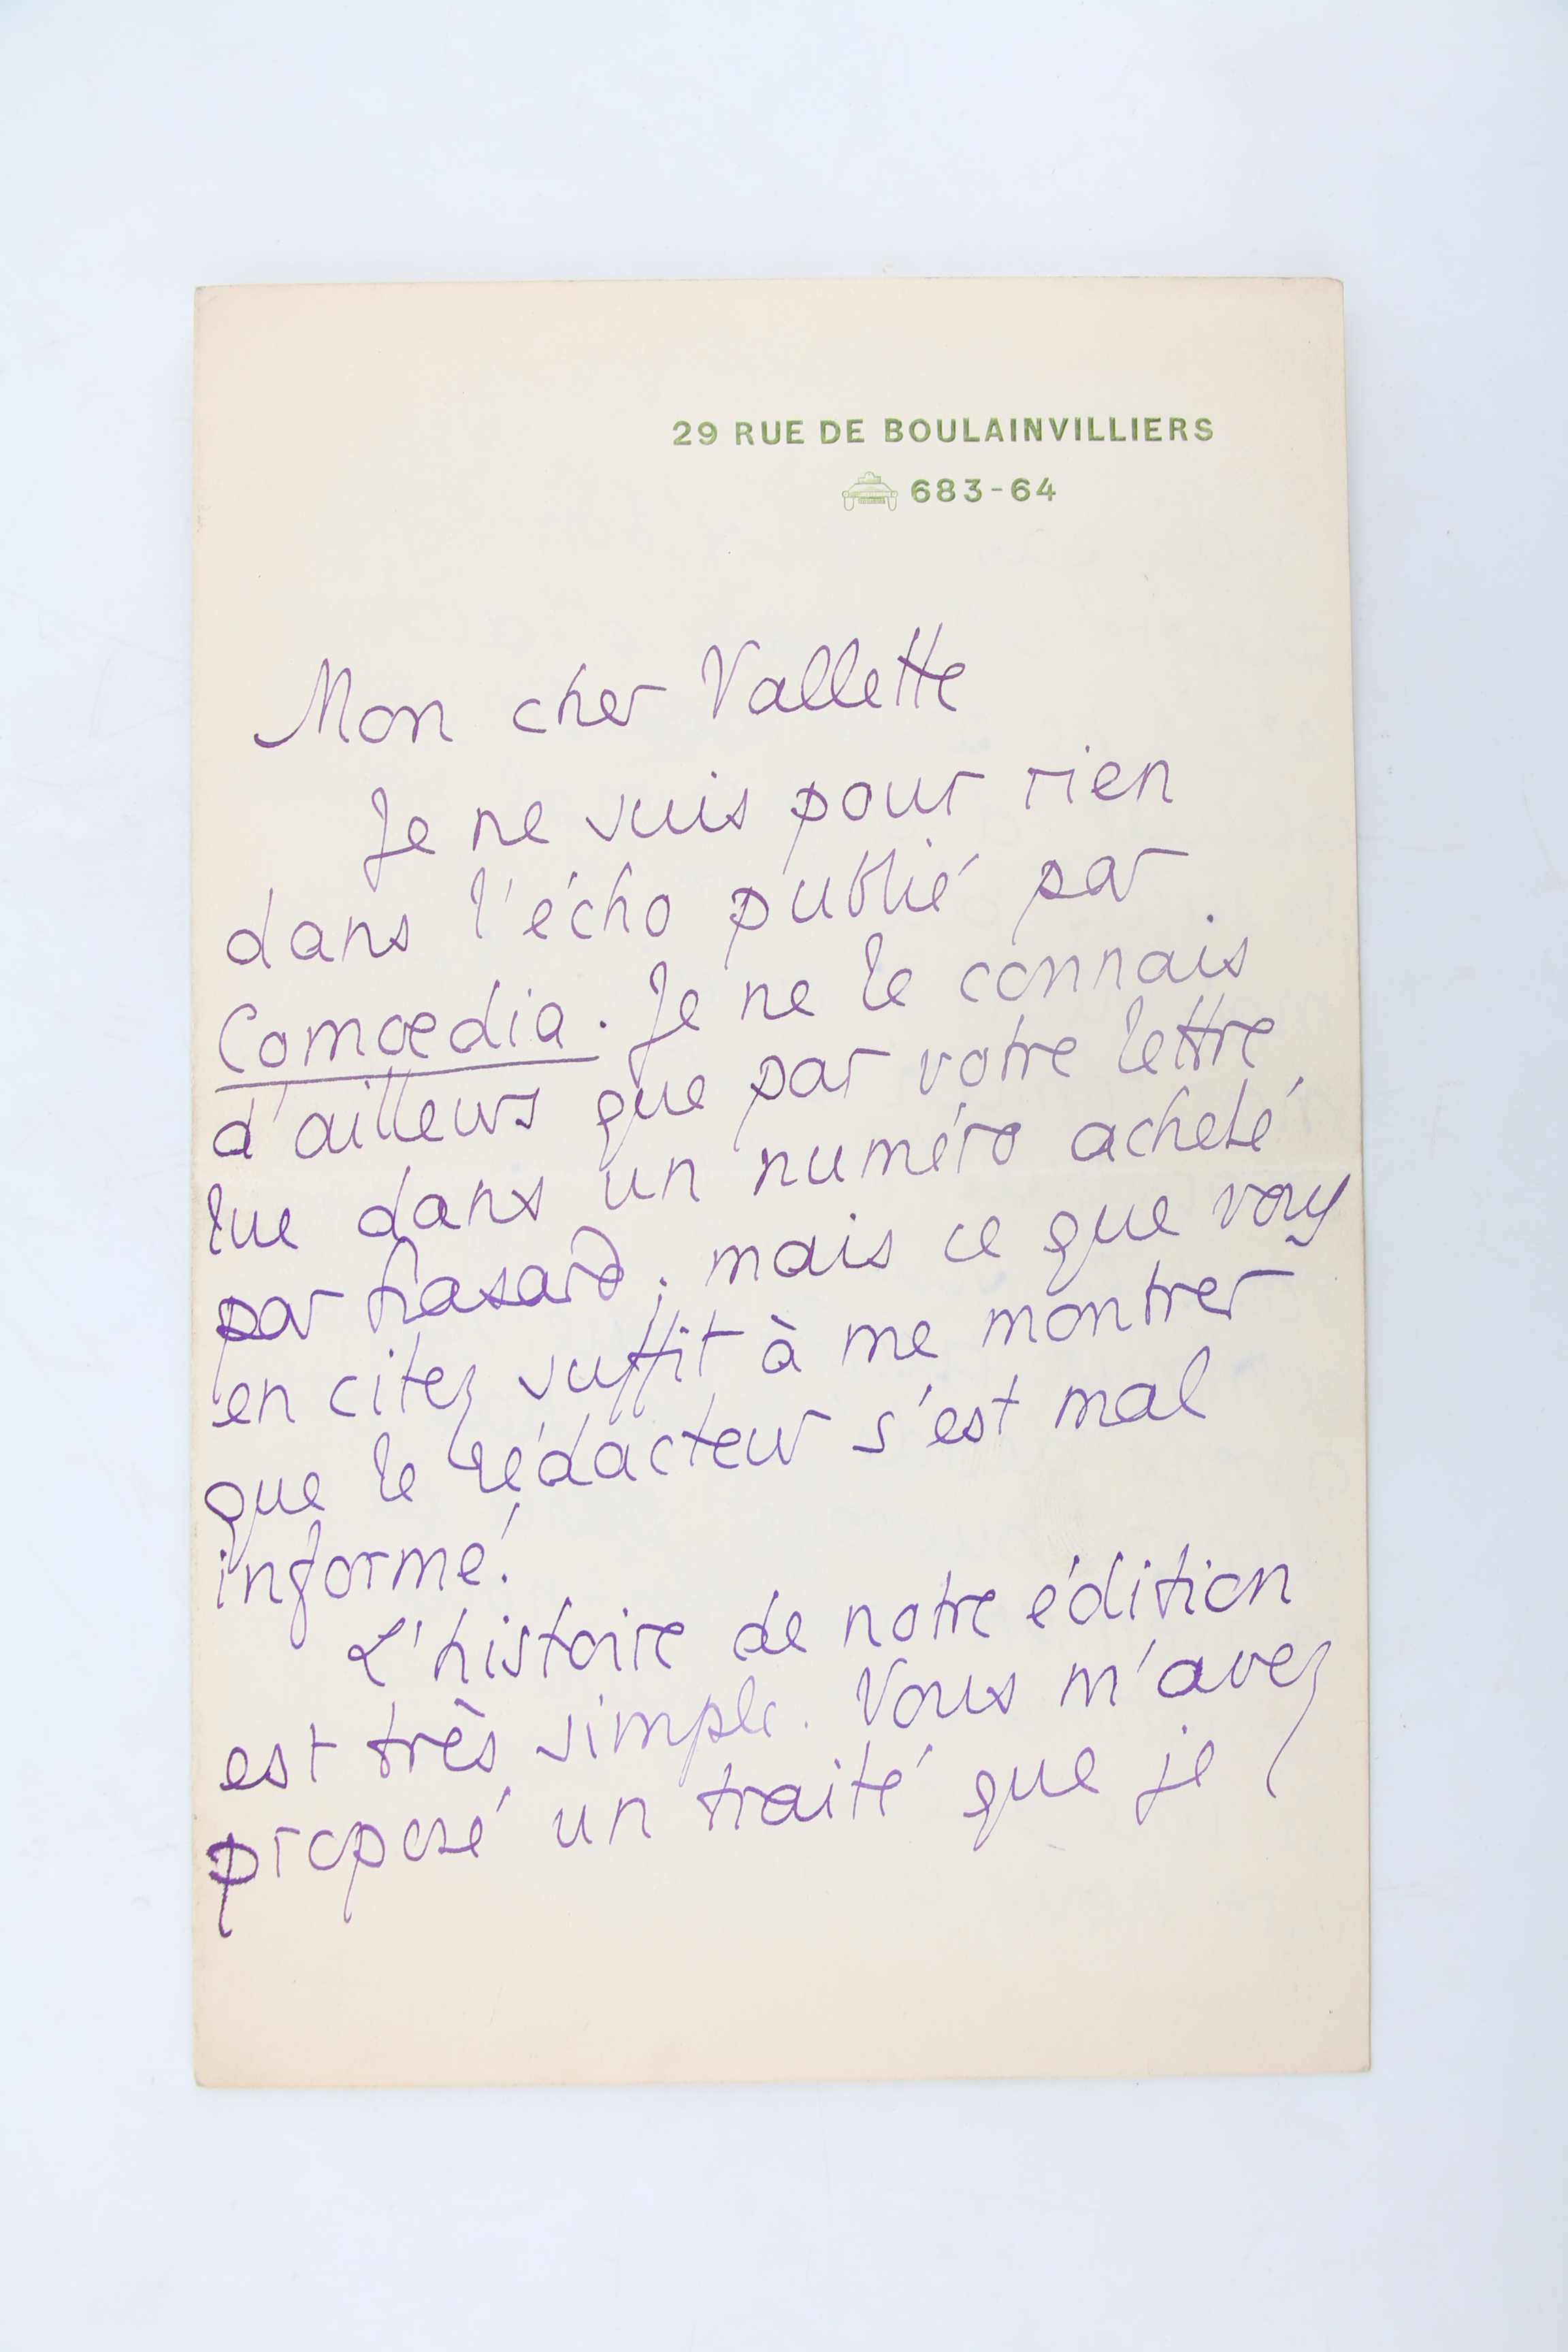 29 RUE DE BOULAINVILLIERS
683-64
Mon cher Vallette
Je ne suis pour rien
dans l'écho publié par
Comœdia. Je ne le connais
d'ailleurs que par votre lettre,
lue dans un numéro acheté
par hasard ; mais ce que vous
en citez suffit à me montrer
que le rédacteur s'est mal
informé.
L'histoire de notre édition
est très simple. Vous m'avez
proposé un traité que je